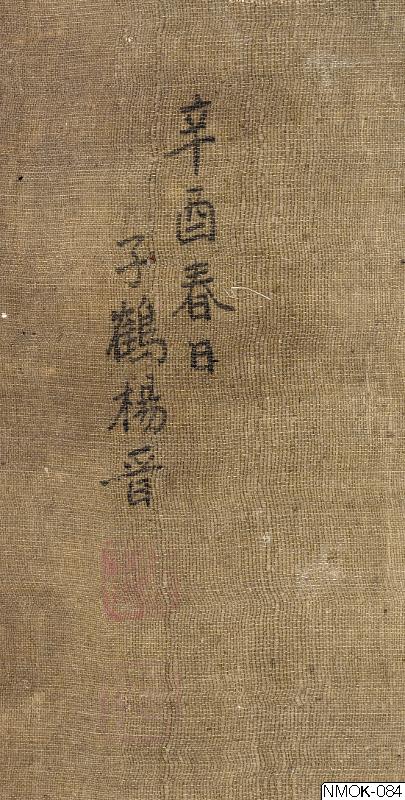 辛酉春日
子鶴楊晉
NMOK-084